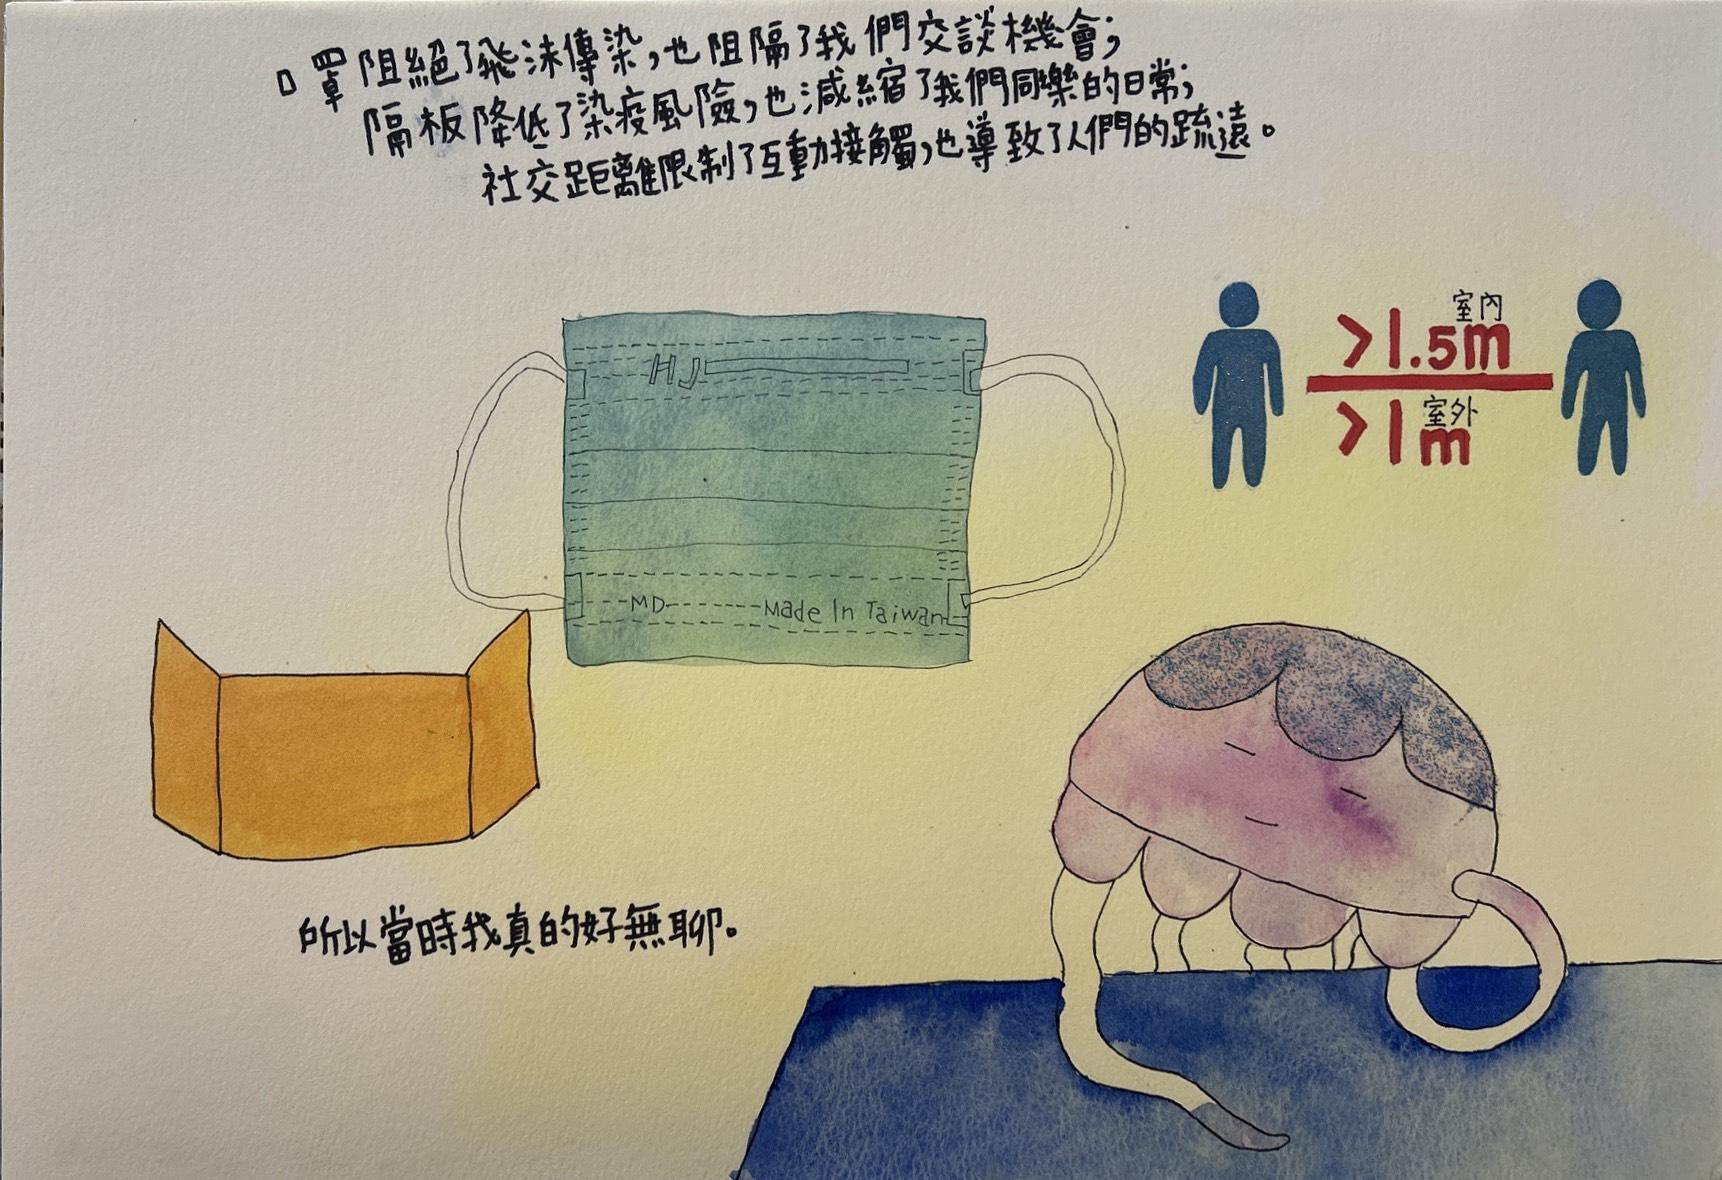 口罩阻絕了飛沫傳染，也阻隔了我們交談機會；
隔板降低了染疫風險，也減縮了我們同樂的日常；
社交距離限制了互動接觸，也導致了人們的疏遠。
室內
>1.5m
室外
>1m
HJ
MD
Made In Taiwan
所以當時我真的好無聊。